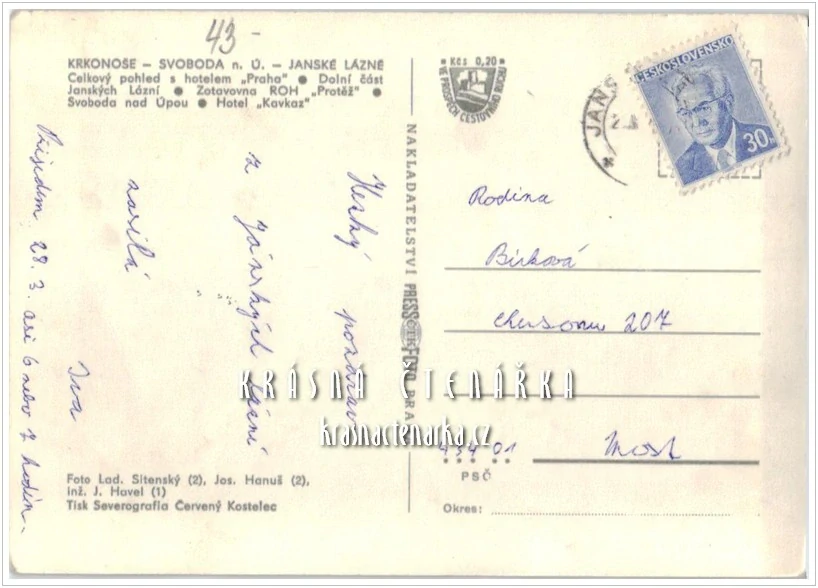 43-
KRKONOŠE – SVOBODA n. Ú. – JANSKÉ LÁZNĚ
Celkový pohled s hotelem „Praha" ● Dolní část
Janských Lázní ● Zotavovna ROH „Protěž" ●
Svoboda nad Úpou ● Hotel „Kavkaz"
Hezký pozdrav
z Jánských Lázní
zasílá
Iva
Přijedem 28. 3. asi 6 nebo 7 hodin.
Foto Lad. Sitenský (2), Jos. Hanuš (2),
inž. J. Havel (1)
Tisk Severografia Červený Kostelec
NAKLADATELSTVÍ PRESSFOTO PRA
Kčs 0,20
VE PROSPĚCH CESTOVNÍHO RUCHU
JANS
ČESKOSLOVENSKO
30h
Rodina
Bírková
207
434 01
Most
PSČ
Okres:
KRÁSNÁ ČTENÁŘKA
krasnactenarka.cz